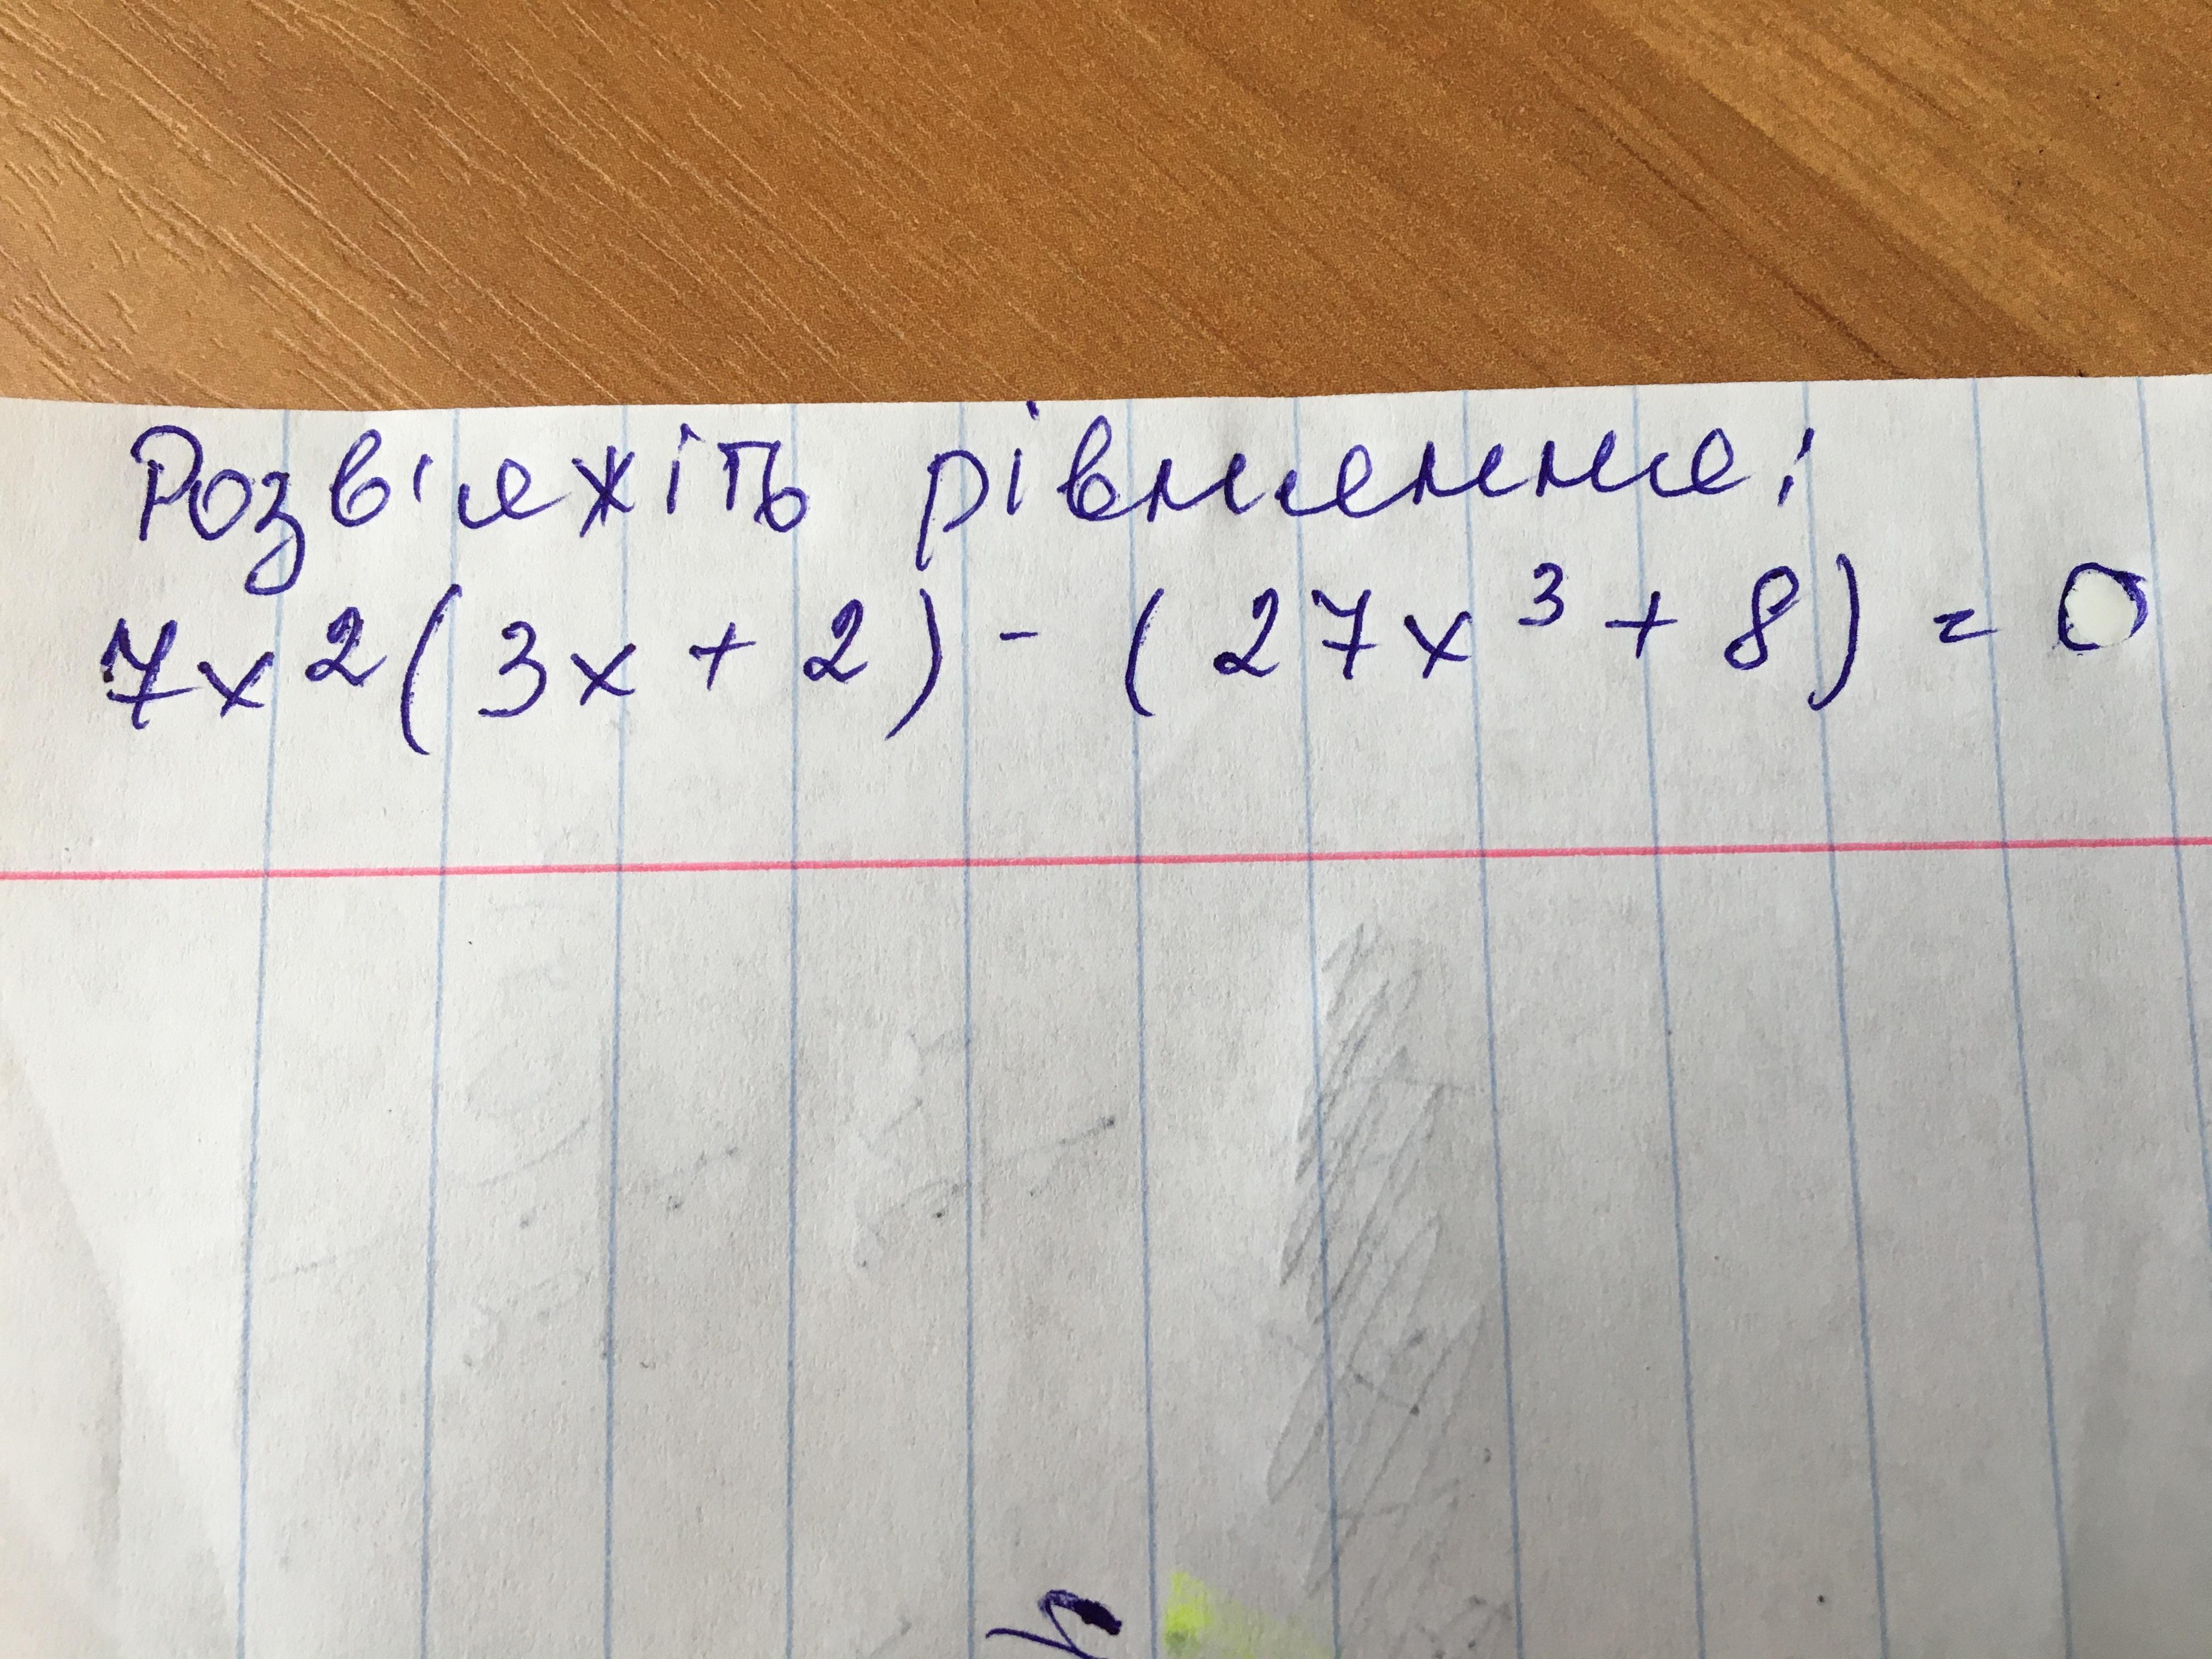 Розв'яжіть рівняння:
7x²(3x + 2) - (27x³ + 8) = 0